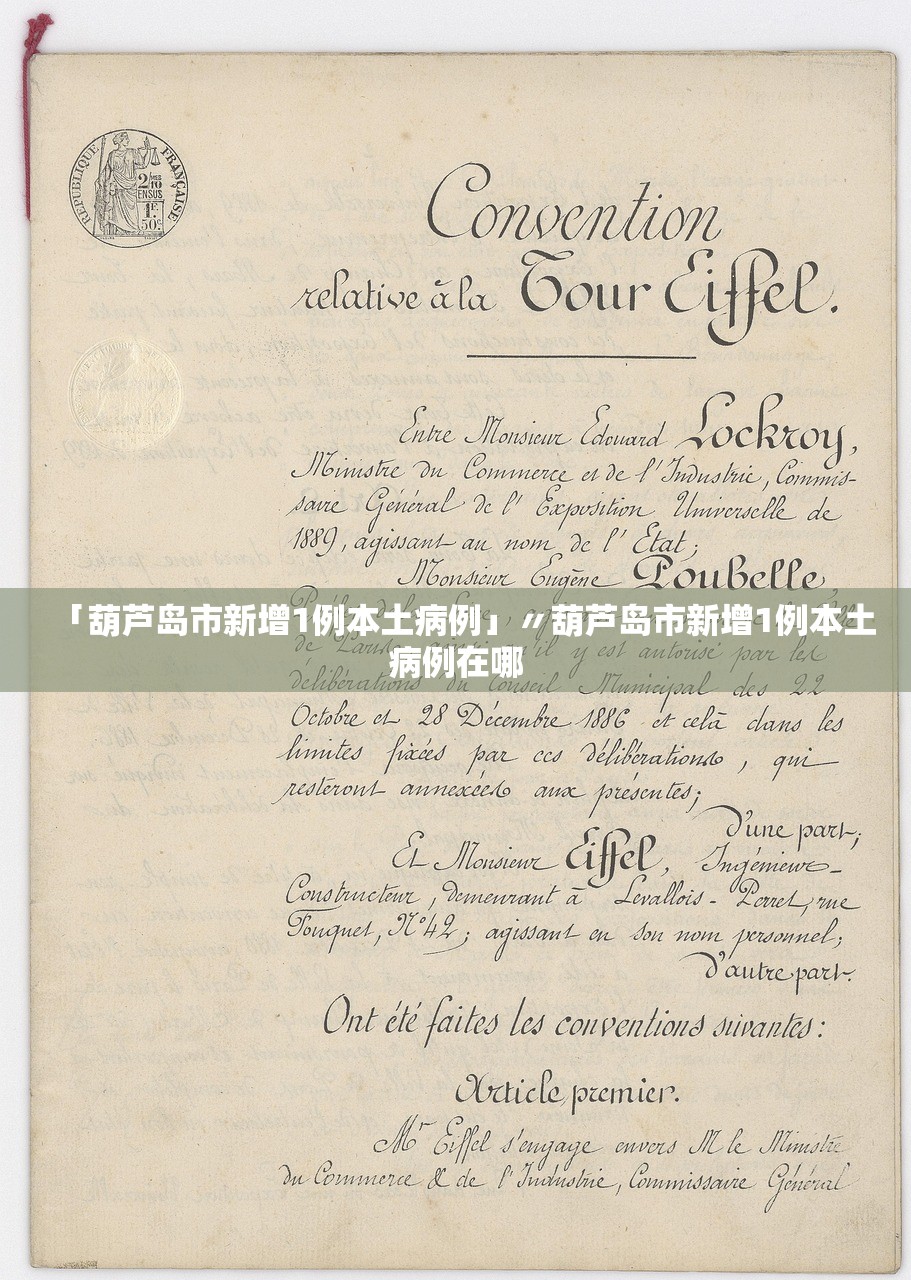 RÉPUBLIQUE FRANÇAISE
2/10
EN SUS
1F.
50c
Convention
relative à la Tour Eiffel.
Entre Monsieur Edouard Lockroy,
Ministre du Commerce et de l'Industrie, Commis-
saire Général de l'Exposition Universelle de
1889, agissant au nom de l'Etat;
Monsieur Eugène Poubelle,
「葫芦岛市新增1例本土病例」〃葫芦岛市新增1例本土
病例在哪
de Paris, qu'il y est autorisé par les
délibérations du Conseil Municipal des 22
Octobre et 28 Décembre 1886 et celà dans les
limites fixées par ces délibérations, qui
resteront annexées aux présentes;
D'une part;
Et Monsieur Eiffel, Ingénieur-
Constructeur, demeurant à Levallois-Perret, rue
Fouquet, N°42; agissant en son nom personnel;
D'autre part.
Ont été faites les conventions suivantes:
Article premier.
Mr Eiffel s'engage envers M le Ministre
du Commerce & de l'Industrie, Commissaire Général